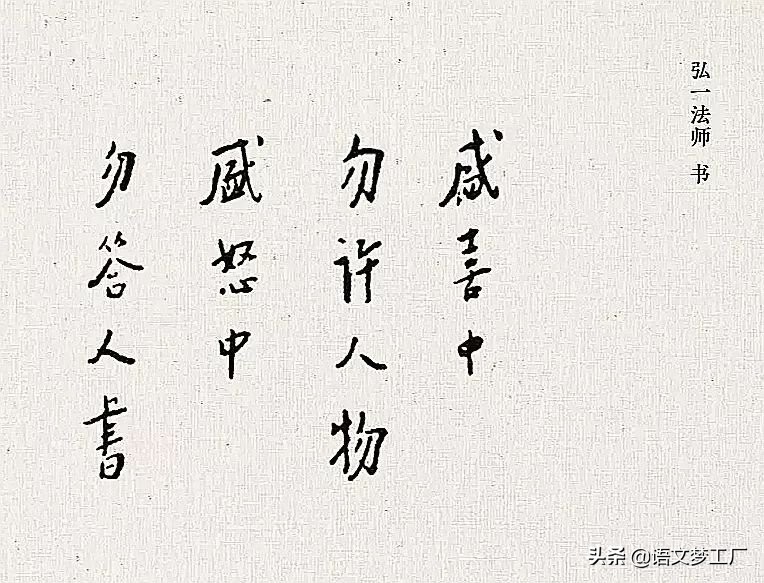 弘一法师 书
盛喜中
勿许人物
盛怒中
勿答人書
头条 @语文梦工厂